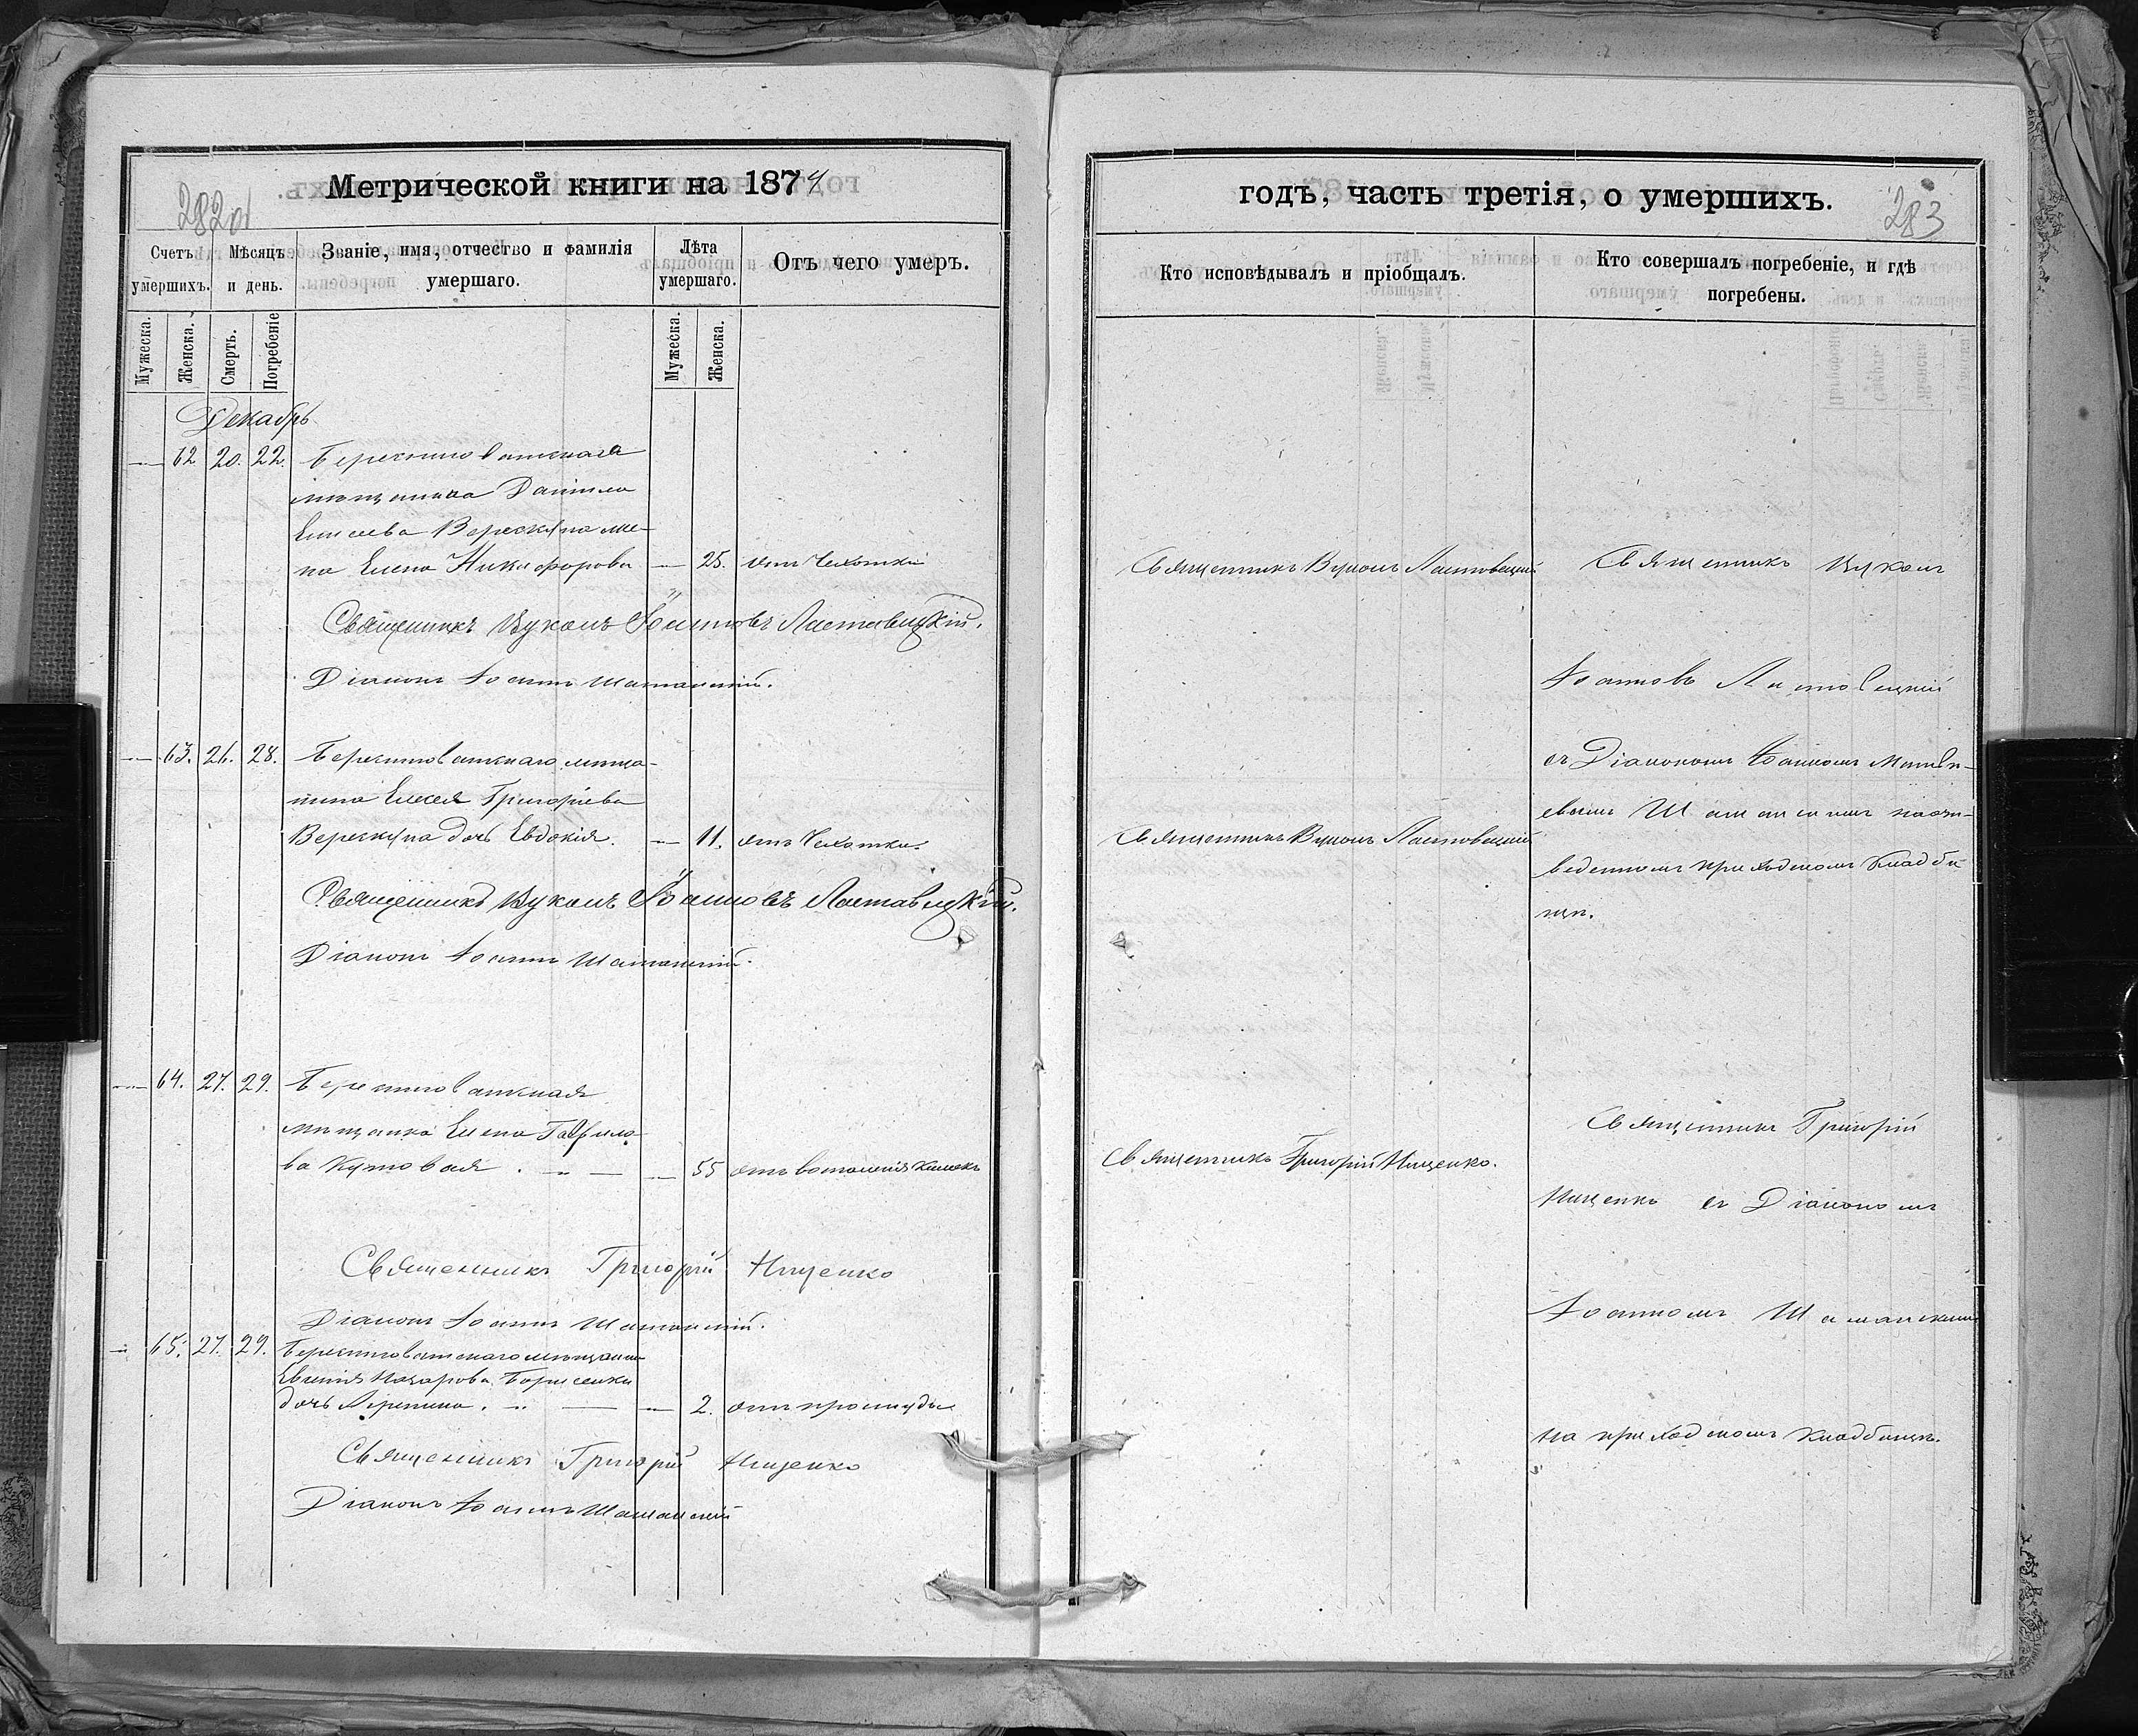 Метрической книги на 1874
282об
Счетъ умершихъ.
Мѣсяцъ и день.
Званіе, имя, отчество и фамилія умершаго.
Лѣта умершаго.
Отъ чего умеръ.
Мужеска.
Женска.
Смерть.
Погребеніе
Мужеска.
Женска.
Декабрь
— 62 20. 22. Берестоватская
мѣщанина Даніила
Елисеева Верескуна же-
на Елена Никифорова — 25. отъ Чехотки
Священникъ Вуколъ Іоанновъ Ластовицкій.
Діаконъ Іоаннъ Шаманскій.
— 63. 26. 28. Берестоватскаго мѣща-
нина Елисея Григоріева
Верескуна дочь Евдокія. — 11. отъ Чехотки.
Священникъ Вуколъ Іоанновъ Ластовицкій.
Діаконъ Іоаннъ Шаманскій.
— 64. 27. 29. Берестоватская
мѣщанка Елена Гаврило-
ва Кутовая. — — 55 отъ воспаленія кишекъ
Священникъ Григорій Нищенко
Діаконъ Іоаннъ Шаманскій.
— 65. 27. 29. Берестоватскаго мѣщанина
Евгенія Назарова Борисенка
дочь Ирина. — — 2. отъ простуды
Священникъ Григорій Нищенко
Діаконъ Іоаннъ Шаманскій
годъ, часть третія, о умершихъ.
283
Кто исповѣдывалъ и пріобщалъ.
Кто совершалъ погребеніе, и гдѣ погребены.
Священникъ Вуколъ Ластовецкій
Священникъ Вуколъ
Іоанновъ Ластовецкій
съ Діакономъ Іоанномъ Матвѣ-
евымъ Шаманскимъ на
приходскомъ кладби-
щѣ.
Священникъ Вуколъ Ластовецкій
Священникъ Григорій Нищенко.
Священникъ Григорій
Нищенко съ Діакономъ
Іоанномъ Шаманскимъ
на приходскомъ кладбищѣ.